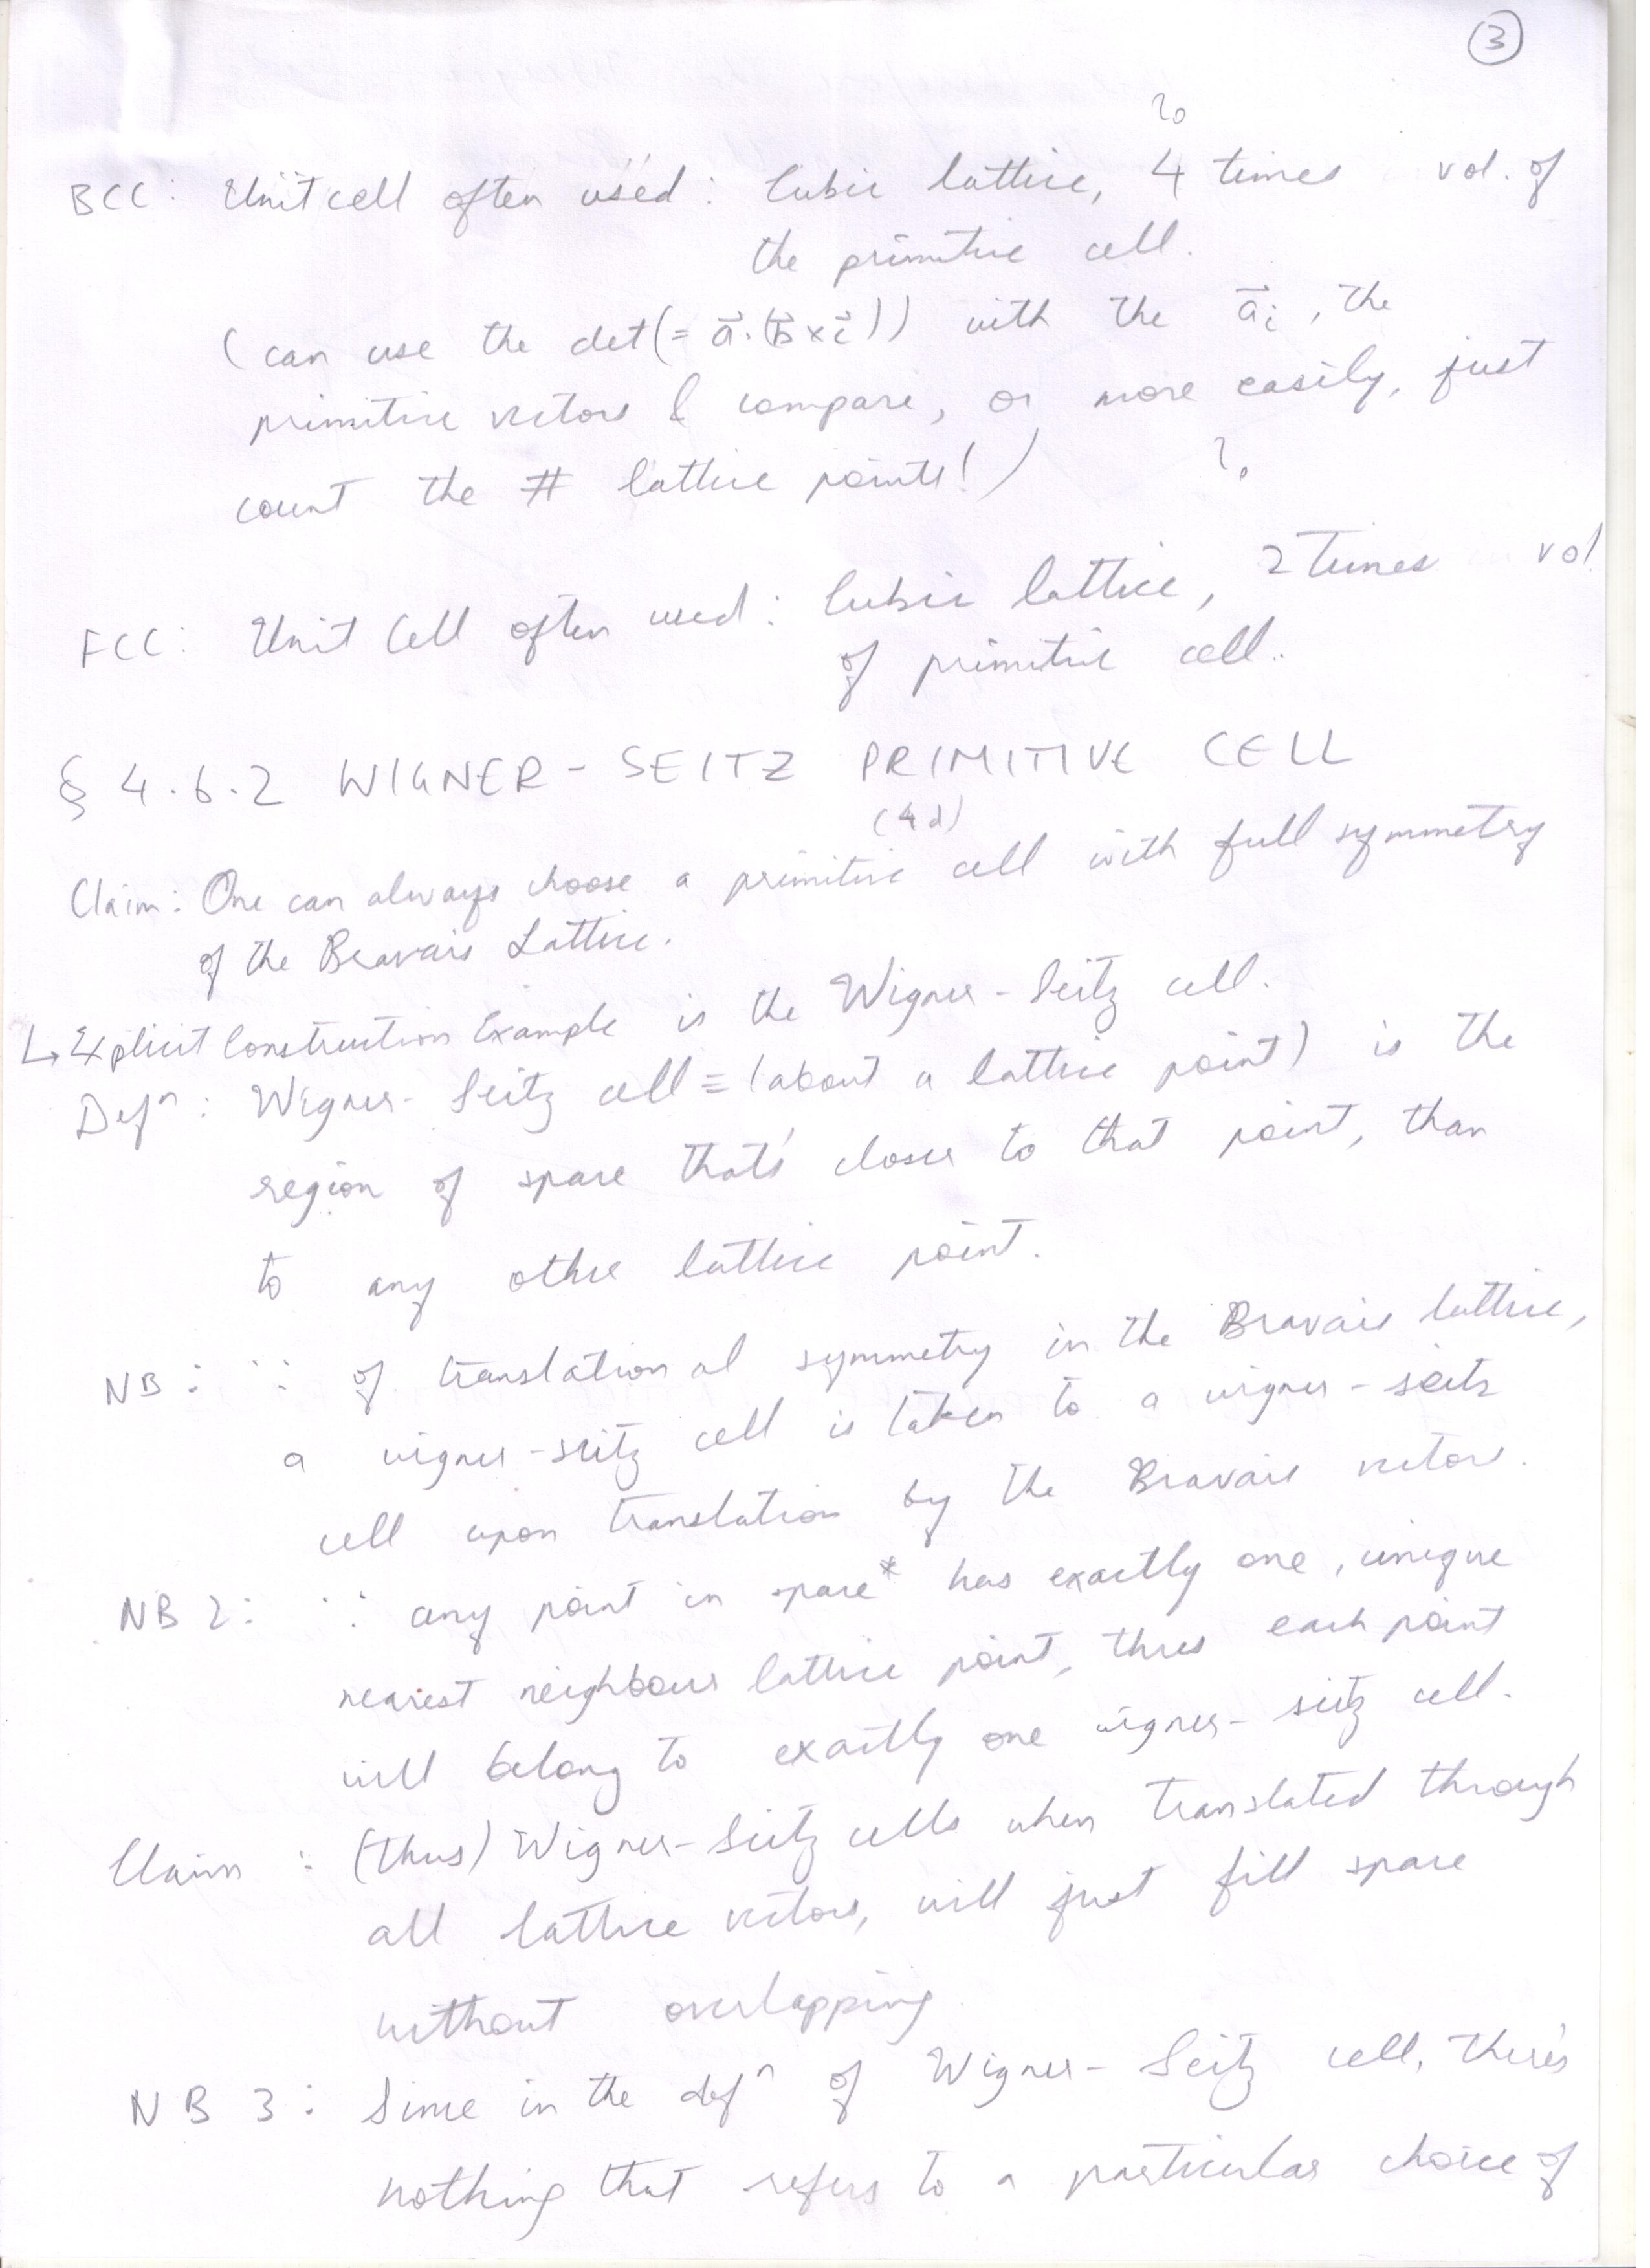 3
?
BCC: Unit cell often used: Cubic lattice, 4 times vol. of
the primitive cell.
(can use the det(= a⃗·(b⃗×c⃗)) with the a⃗ᵢ, the
primitive vectors & compare, or more easily, just
count the # lattice points!)
?
FCC: Unit Cell often used: Cubic lattice, 2 times vol
of primitive cell.
§ 4.6.2 WIGNER-SEITZ PRIMITIVE CELL
Claim: One can always choose a primitive cell with full symmetry
of the Bravais Lattice.
↳ Explicit Construction Example is the Wigner-Seitz cell.
Defⁿ: Wigner-Seitz cell ≡ (about a lattice point) is the
region of space that's closer to that point, than
to any other lattice point.
NB: ∵ of translational symmetry in the Bravais lattice,
a wigner-seitz cell is taken to a wigner-seitz
cell upon translation by the Bravais vectors.
NB 2: ∵ any point in space* has exactly one, unique
nearest neighbour lattice point, thus each point
will belong to exactly one wigner-seitz cell.
Claim: (thus) Wigner-Seitz cells when translated through
all lattice vectors, will just fill space
without overlapping
NB 3: Since in the defⁿ of Wigner-Seitz cell, there's
nothing that refers to a particular choice of